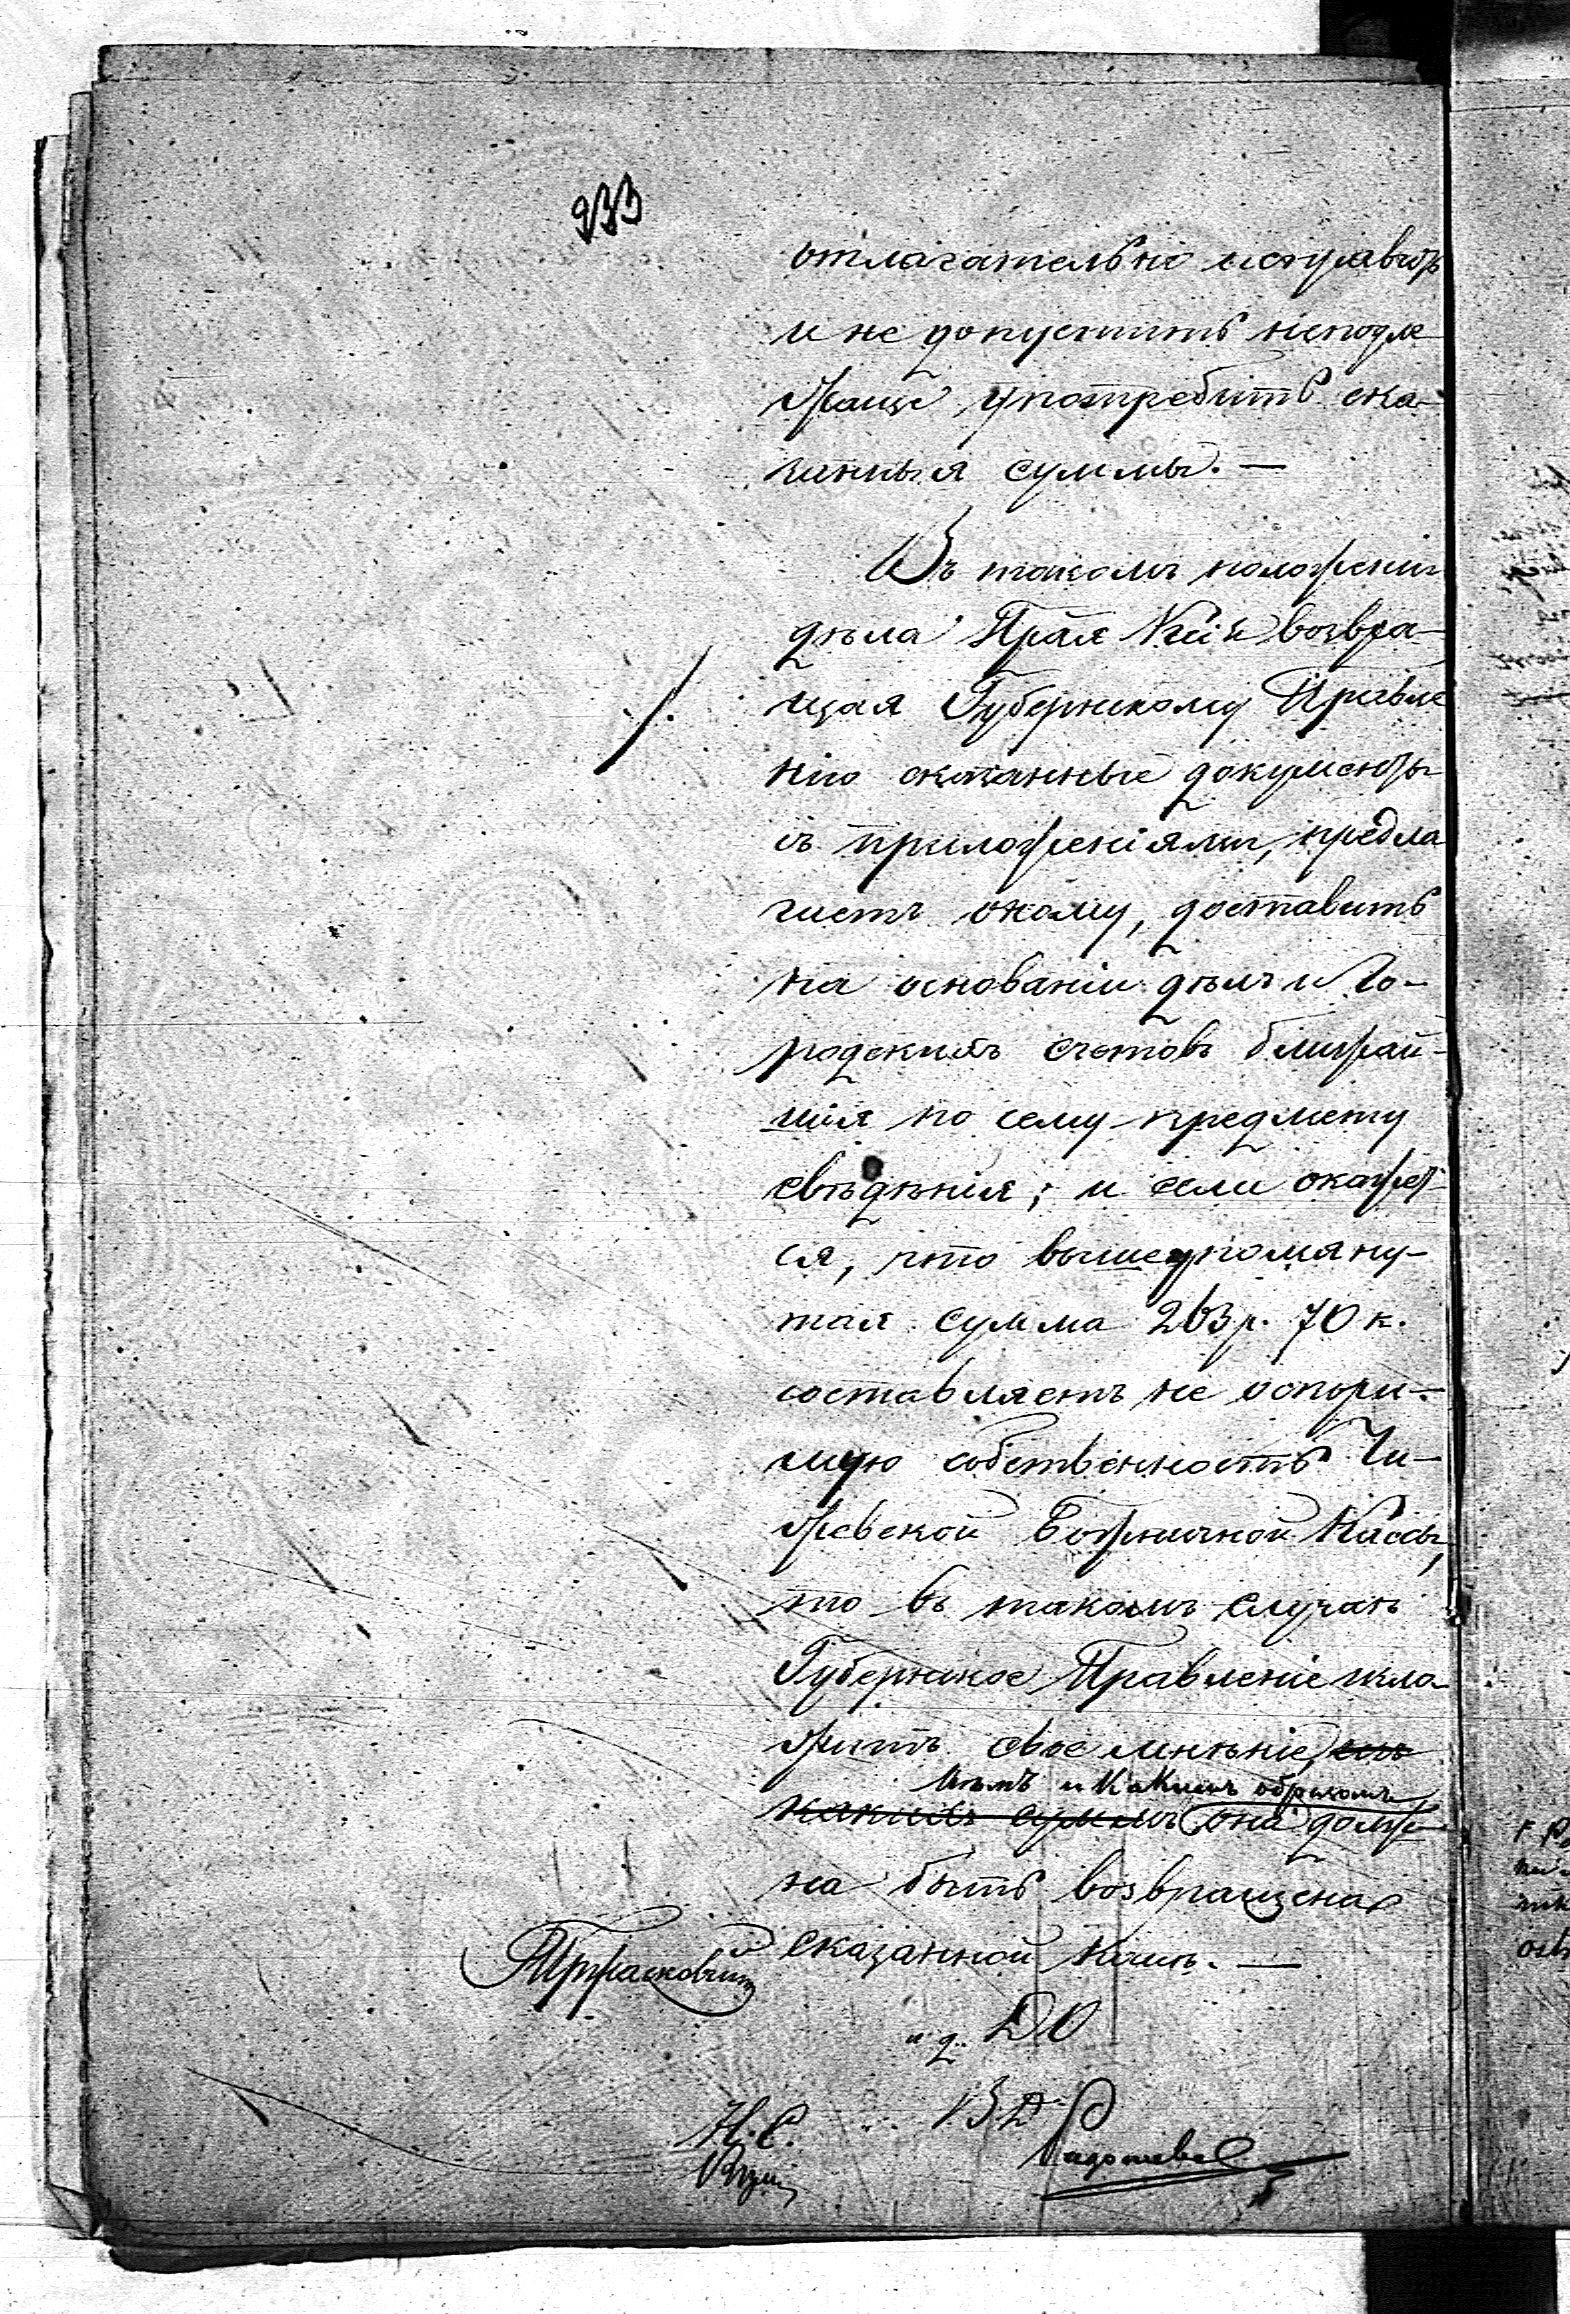 933
отлагательно исправить
и не допустить неподле
жаще употребить ска-
занныя суммы. —
Въ такомъ положеніи
дѣла возвра-
щая Губернскому Правле
нію сказанные документы
съ приложеніями, предла
гаетъ оному, доставить
на основаніи дѣлъ и Го-
родскихъ счетовъ ближай-
шія по сему предмету
свѣдѣнія; и если окажет-
ся, что вышеупомяну-
тая сумма 263 р. 70 к.
составляетъ не оспори-
мую собственность Чи-
жевской Божничной Кассы,
то въ такомъ случаѣ
Губернское Правленіе изло
житъ свое мнѣніе,
кѣмъ и какимъ образомъ
какихъ суммъ она долж-
на быть возвращена
сказанной Кассѣ. —
и д. ДО
Н. С.
ВД